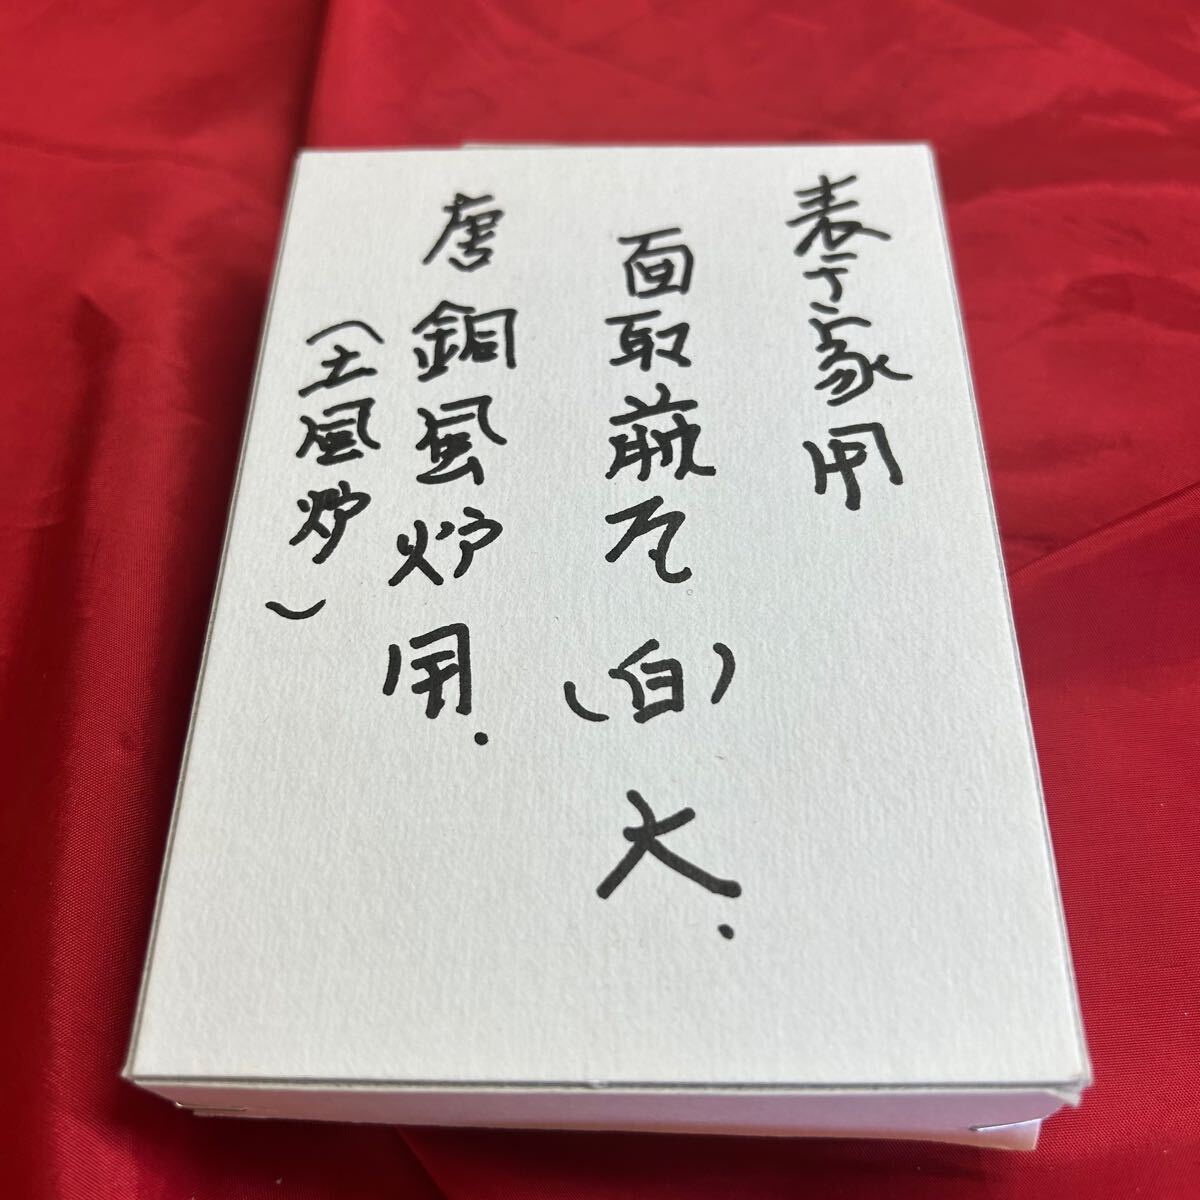 表千家用
面取前瓦（白）大.
唐銅風炉用.
（土風炉）